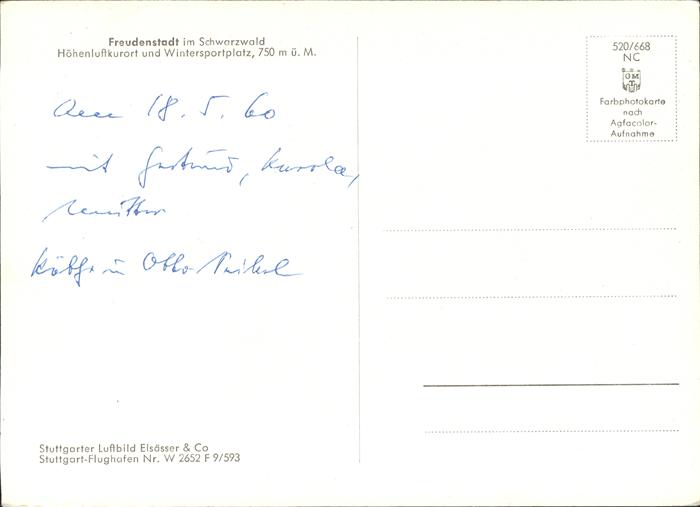 Freudenstadt im Schwarzwald
Höhenluftkurort und Wintersportplatz, 750 m ü. M.
520/668
NC
Farbphotokarte
nach
Agfacolor-
Aufnahme
Am 18. 5. 60
mit
Otto
Stuttgarter Luftbild Elsässer & Co
Stuttgart-Flughafen Nr. W 2652 F 9/593